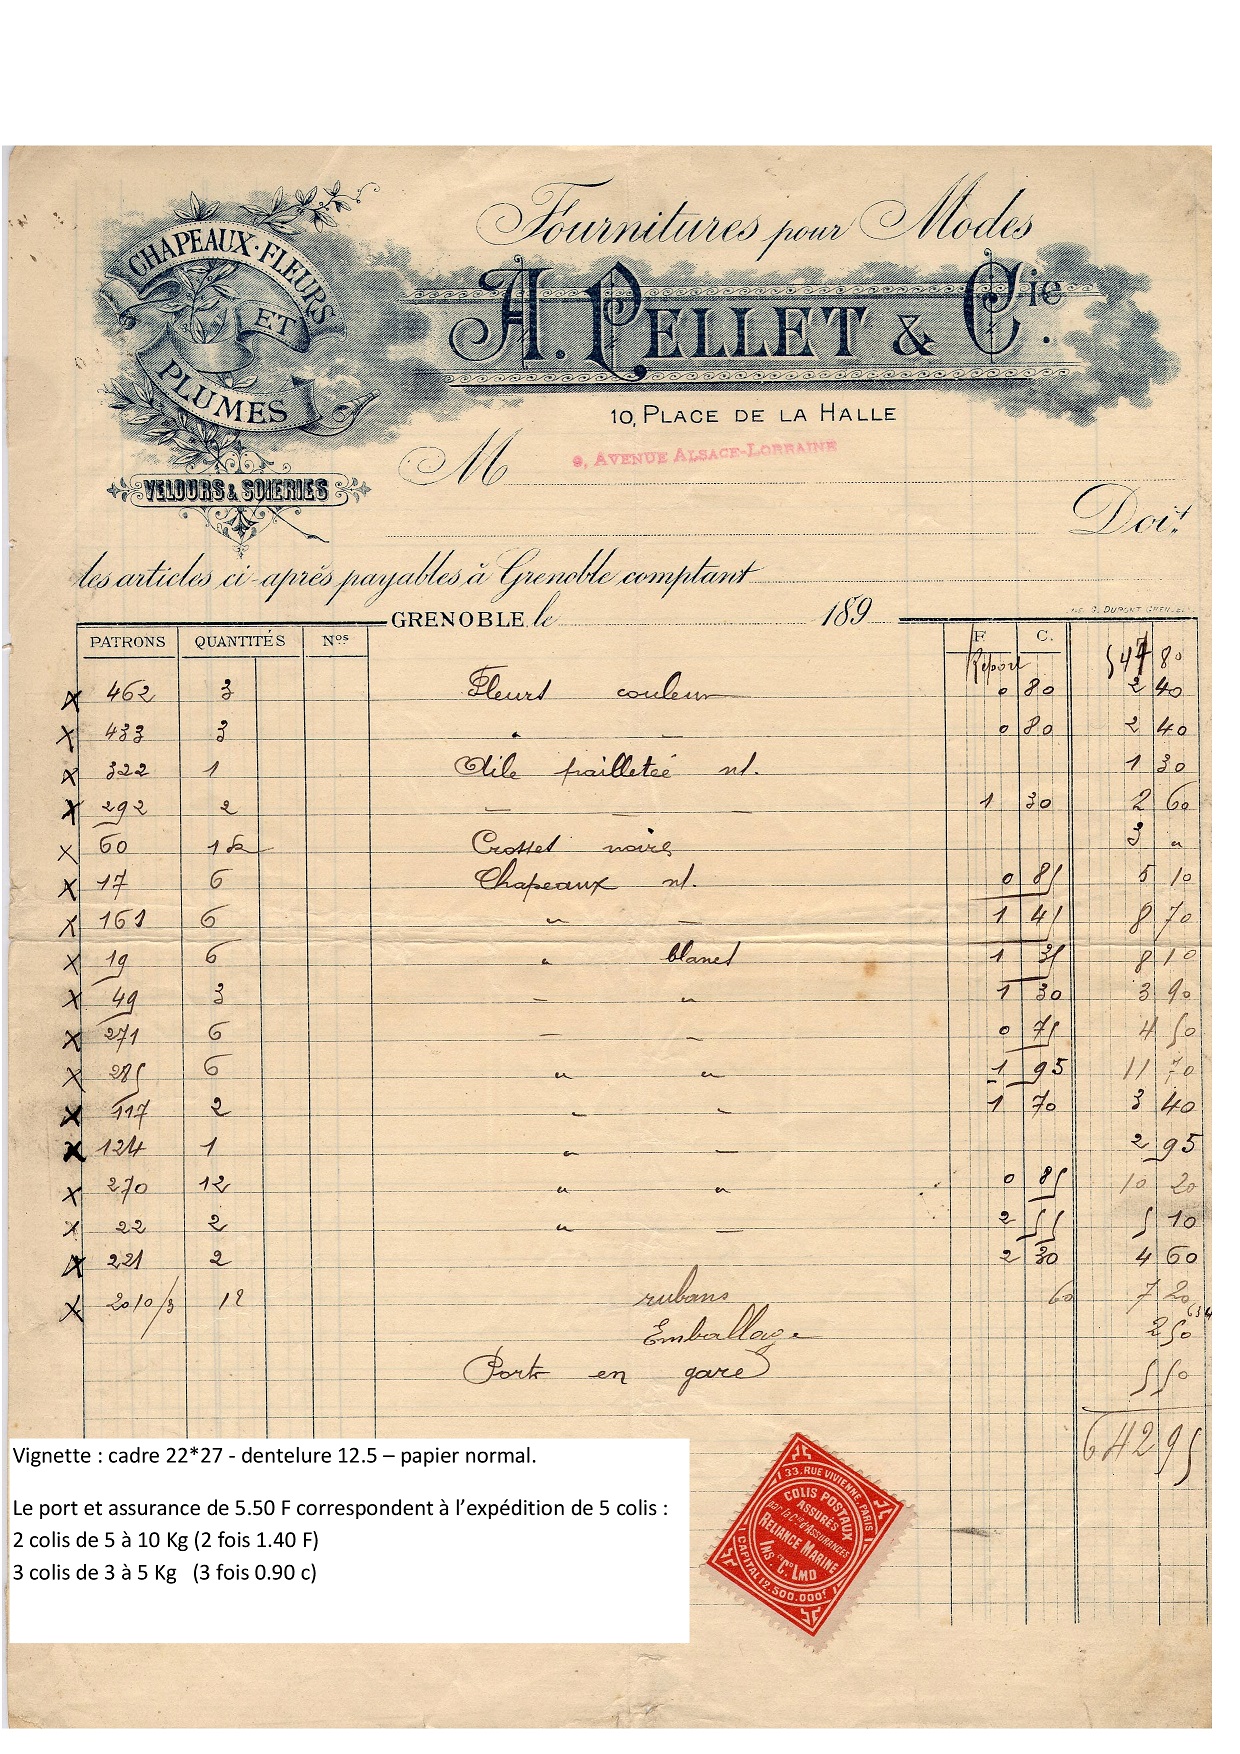 CHAPEAUX·FLEURS
ET
PLUMES
VELOURS & SOIERIES
Fournitures pour Modes
A. PELLET & Cie.
10, PLACE DE LA HALLE
9, AVENUE ALSACE-LORRAINE
M
Doit
les articles ci-après payables à Grenoble comptant
GRENOBLE, le 189
G. DUPONT
PATRONS QUANTITÉS Nos F C.
Report 547 80
x 462 3 Fleurs couleur 0 80 2 40
x 433 3 " — 0 80 2 40
x 322 1 Aile pailletée nt. 1 30
x 292 2 — — 1 30 2 60
x 60 Crosses noires 3 "
x 17 6 Chapeaux nt. 0 85 5 10
x 161 6 " — 1 45 8 70
x 19 6 " blancs 1 35 8 10
x 49 3 — " 1 30 3 90
x 271 6 — — 0 75 4 50
x 285 6 " " 1 95 11 70
x 117 2 " — 1 70 3 40
x 124 1 " — 2 95
x 270 12 " " 0 85 10 20
x 22 2 " — 2 55 5 10
x 221 2 2 30 4 60
x 2010/3 12 rubans 60 7 20
Emballage 2 50
Port en gare 5 50
642 95
Vignette : cadre 22*27 - dentelure 12.5 – papier normal.
Le port et assurance de 5.50 F correspondent à l’expédition de 5 colis :
2 colis de 5 à 10 Kg (2 fois 1.40 F)
3 colis de 3 à 5 Kg (3 fois 0.90 c)
33, RUE VIVIENNE, PARIS
COLIS POSTAUX
ASSURÉS
par la Cie d'Assurances
RELIANCE MARINE
INS. "C" LMD
CAPITAL 12.500.000f